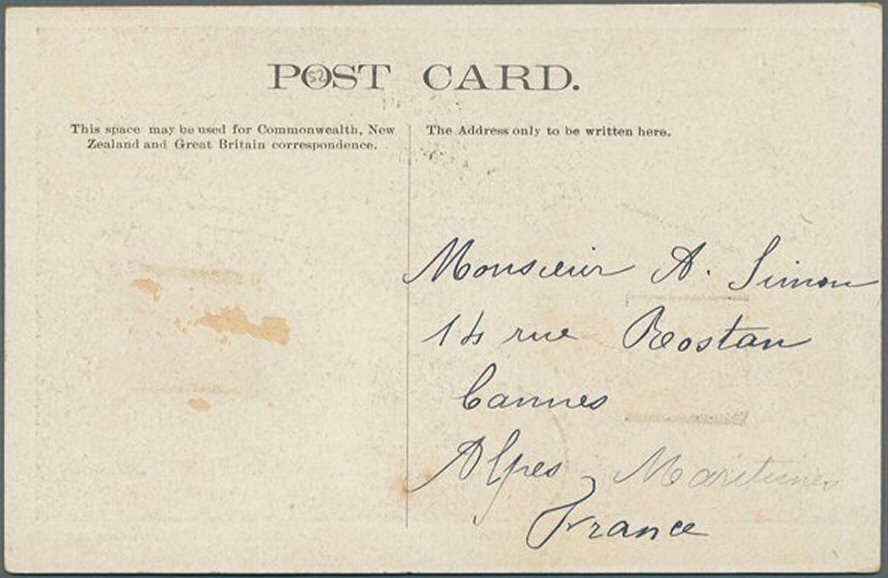 POST CARD.
52
This space may be used for Commonwealth, New
Zealand and Great Britain correspondence.
The Address only to be written here.
Monsieur A. Simon
14 rue Rostan
Cannes
Alpes Maritimes
France